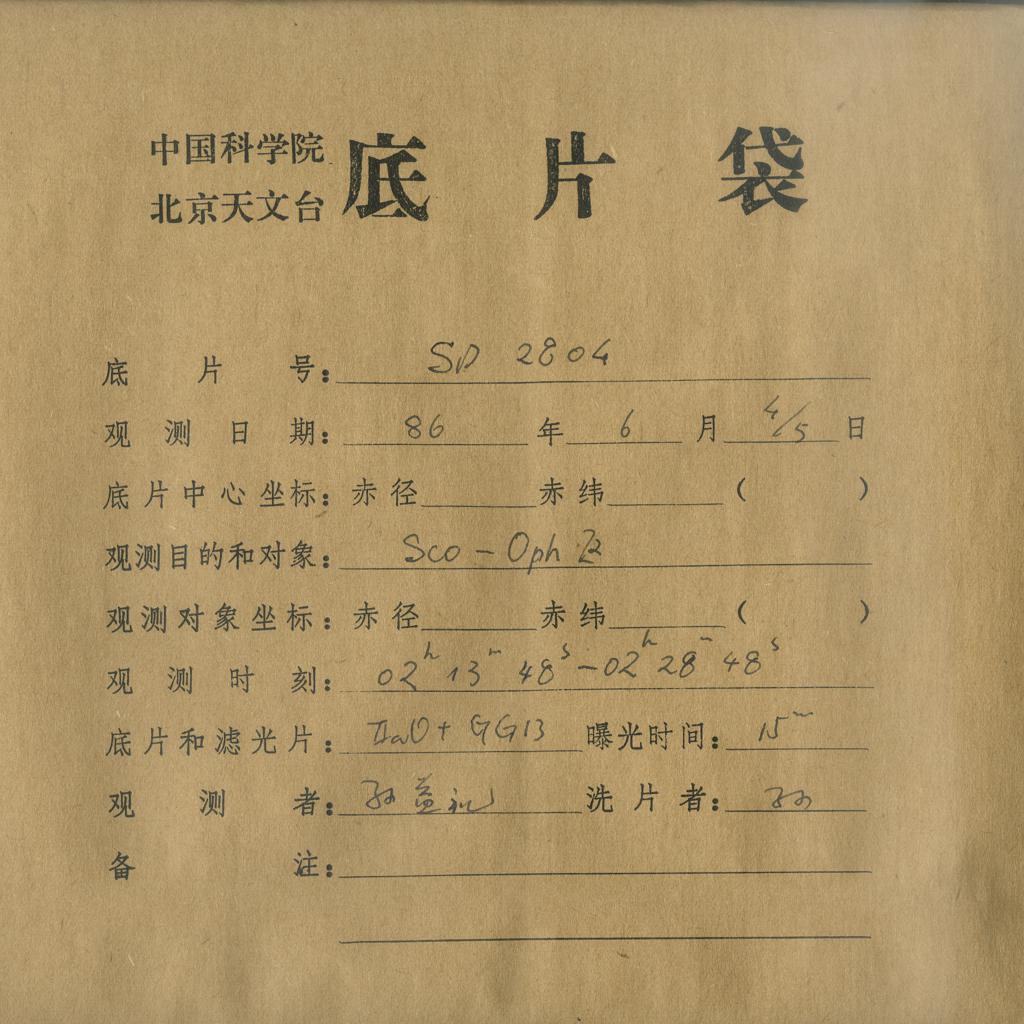 中国科学院
北京天文台 底片袋
底片号: SP 2804
观测日期: 86 年 6 月 4/5 日
底片中心坐标: 赤径 赤纬 ( )
观测目的和对象: Sco - Oph 区
观测对象坐标: 赤径 赤纬 ( )
观测时刻: 02h 13m 48s - 02h 28m 48s
底片和滤光片: IIaO + GG13 曝光时间: 15m
观测者: 孙益礼 洗片者: 孙
备注: